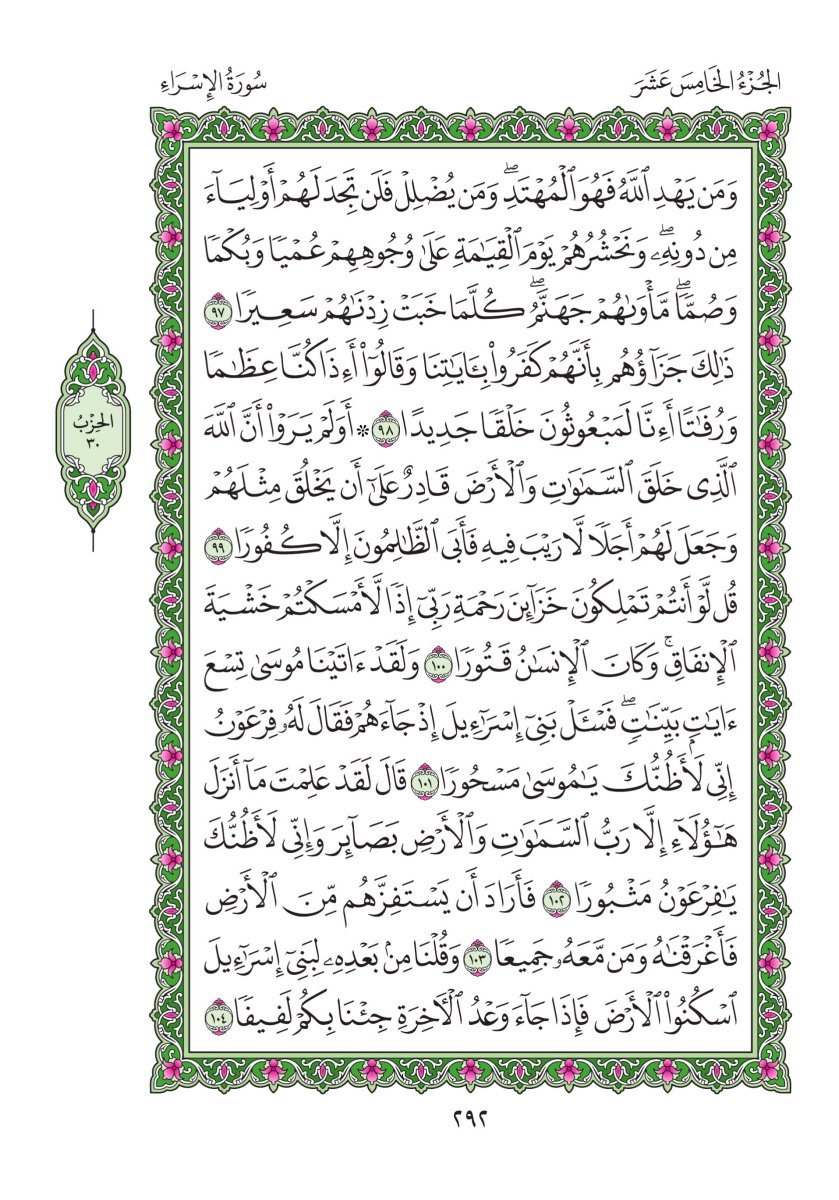 الجُزْءُ الخَامِسَ عَشَرَ
سُورَةُ الإِسْرَاءِ
وَمَن يَهْدِ ٱللَّهُ فَهُوَ ٱلْمُهْتَدِۖ وَمَن يُضْلِلْ فَلَن تَجِدَ لَهُمْ أَوْلِيَآءَ
مِن دُونِهِۦۖ وَنَحْشُرُهُمْ يَوْمَ ٱلْقِيَٰمَةِ عَلَىٰ وُجُوهِهِمْ عُمْيًا وَبُكْمًا
وَصُمًّاۖ مَّأْوَىٰهُمْ جَهَنَّمُۖ كُلَّمَا خَبَتْ زِدْنَٰهُمْ سَعِيرًا ٩٧
ذَٰلِكَ جَزَآؤُهُم بِأَنَّهُمْ كَفَرُوا۟ بِـَٔايَٰتِنَا وَقَالُوٓا۟ أَءِذَا كُنَّا عِظَٰمًا
وَرُفَٰتًا أَءِنَّا لَمَبْعُوثُونَ خَلْقًا جَدِيدًا ٩٨ * أَوَلَمْ يَرَوْا۟ أَنَّ ٱللَّهَ
ٱلَّذِى خَلَقَ ٱلسَّمَٰوَٰتِ وَٱلْأَرْضَ قَادِرٌ عَلَىٰٓ أَن يَخْلُقَ مِثْلَهُمْ
وَجَعَلَ لَهُمْ أَجَلًا لَّا رَيْبَ فِيهِ فَأَبَى ٱلظَّٰلِمُونَ إِلَّا كُفُورًا ٩٩
قُل لَّوْ أَنتُمْ تَمْلِكُونَ خَزَآئِنَ رَحْمَةِ رَبِّىٓ إِذًا لَّأَمْسَكْتُمْ خَشْيَةَ
ٱلْإِنفَاقِۚ وَكَانَ ٱلْإِنسَٰنُ قَتُورًا ١٠٠ وَلَقَدْ ءَاتَيْنَا مُوسَىٰ تِسْعَ
ءَايَٰتٍۭ بَيِّنَٰتٍۖ فَسْـَٔلْ بَنِىٓ إِسْرَٰٓءِيلَ إِذْ جَآءَهُمْ فَقَالَ لَهُۥ فِرْعَوْنُ
إِنِّى لَأَظُنُّكَ يَٰمُوسَىٰ مَسْحُورًا ١٠١ قَالَ لَقَدْ عَلِمْتَ مَآ أَنزَلَ
هَٰٓؤُلَآءِ إِلَّا رَبُّ ٱلسَّمَٰوَٰتِ وَٱلْأَرْضِ بَصَآئِرَ وَإِنِّى لَأَظُنُّكَ
يَٰفِرْعَوْنُ مَثْبُورًا ١٠٢ فَأَرَادَ أَن يَسْتَفِزَّهُم مِّنَ ٱلْأَرْضِ
فَأَغْرَقْنَٰهُ وَمَن مَّعَهُۥ جَمِيعًا ١٠٣ وَقُلْنَا مِنۢ بَعْدِهِۦ لِبَنِىٓ إِسْرَٰٓءِيلَ
ٱسْكُنُوا۟ ٱلْأَرْضَ فَإِذَا جَآءَ وَعْدُ ٱلْءَاخِرَةِ جِئْنَا بِكُمْ لَفِيفًا ١٠٤
الحِزْبُ
٣٠
٢٩٢